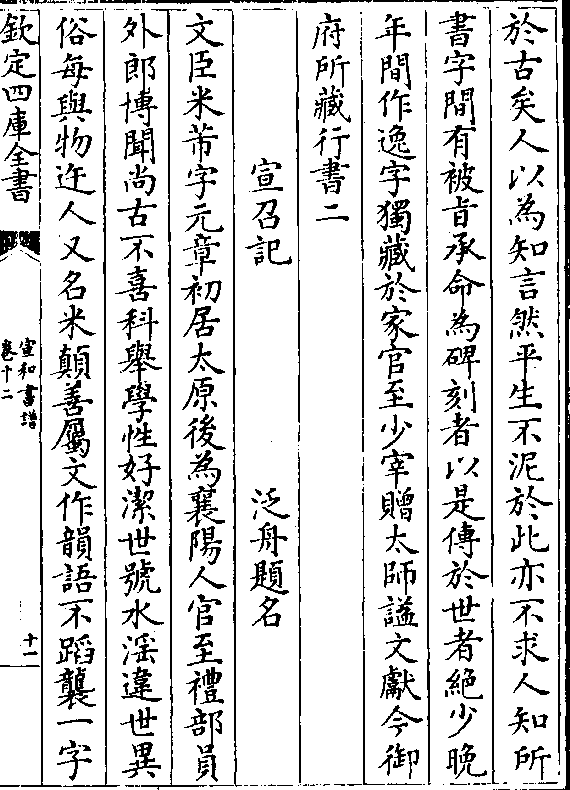 於古矣人以為知言然平生不泥於此亦不求人知所
書字間有被旨承命為碑刻者以是傳於世者絕少晚
年間作逸字獨藏於家官至少宰贈太師諡文獻今御
府所藏行書二
宣召記 泛舟題名
文臣米芾字元章初居太原後為襄陽人官至禮部員
外郎博聞尚古不喜科舉學性好潔世號水淫違世異
俗每與物迕人又名米顛善屬文作韻語不蹈襲一字
欽定四庫全書
宣和書譜
卷十二
十一